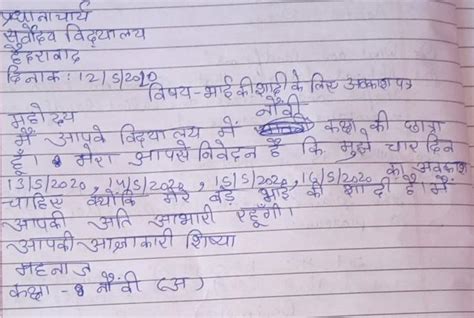 प्रधानाचार्य
सर्वोदय विद्यालय
हैदराबाद
दिनांक: 12/5/2020
विषय- भाई की शादी के लिए अवकाश पत्र
महोदय
मैं आपके विद्यालय में नौवीं कक्षा की छात्रा
हूँ। मेरा आपसे निवेदन है कि मुझे चार दिन
13/5/2020, 14/5/2020, 15/5/2020, 16/5/2020 का अवकाश
चाहिए क्योंकि मेरे बड़े भाई की शादी है। मैं
आपकी अति आभारी रहूँगी।
आपकी आज्ञाकारी शिष्या
महनाज
कक्षा - नौंवी (अ)